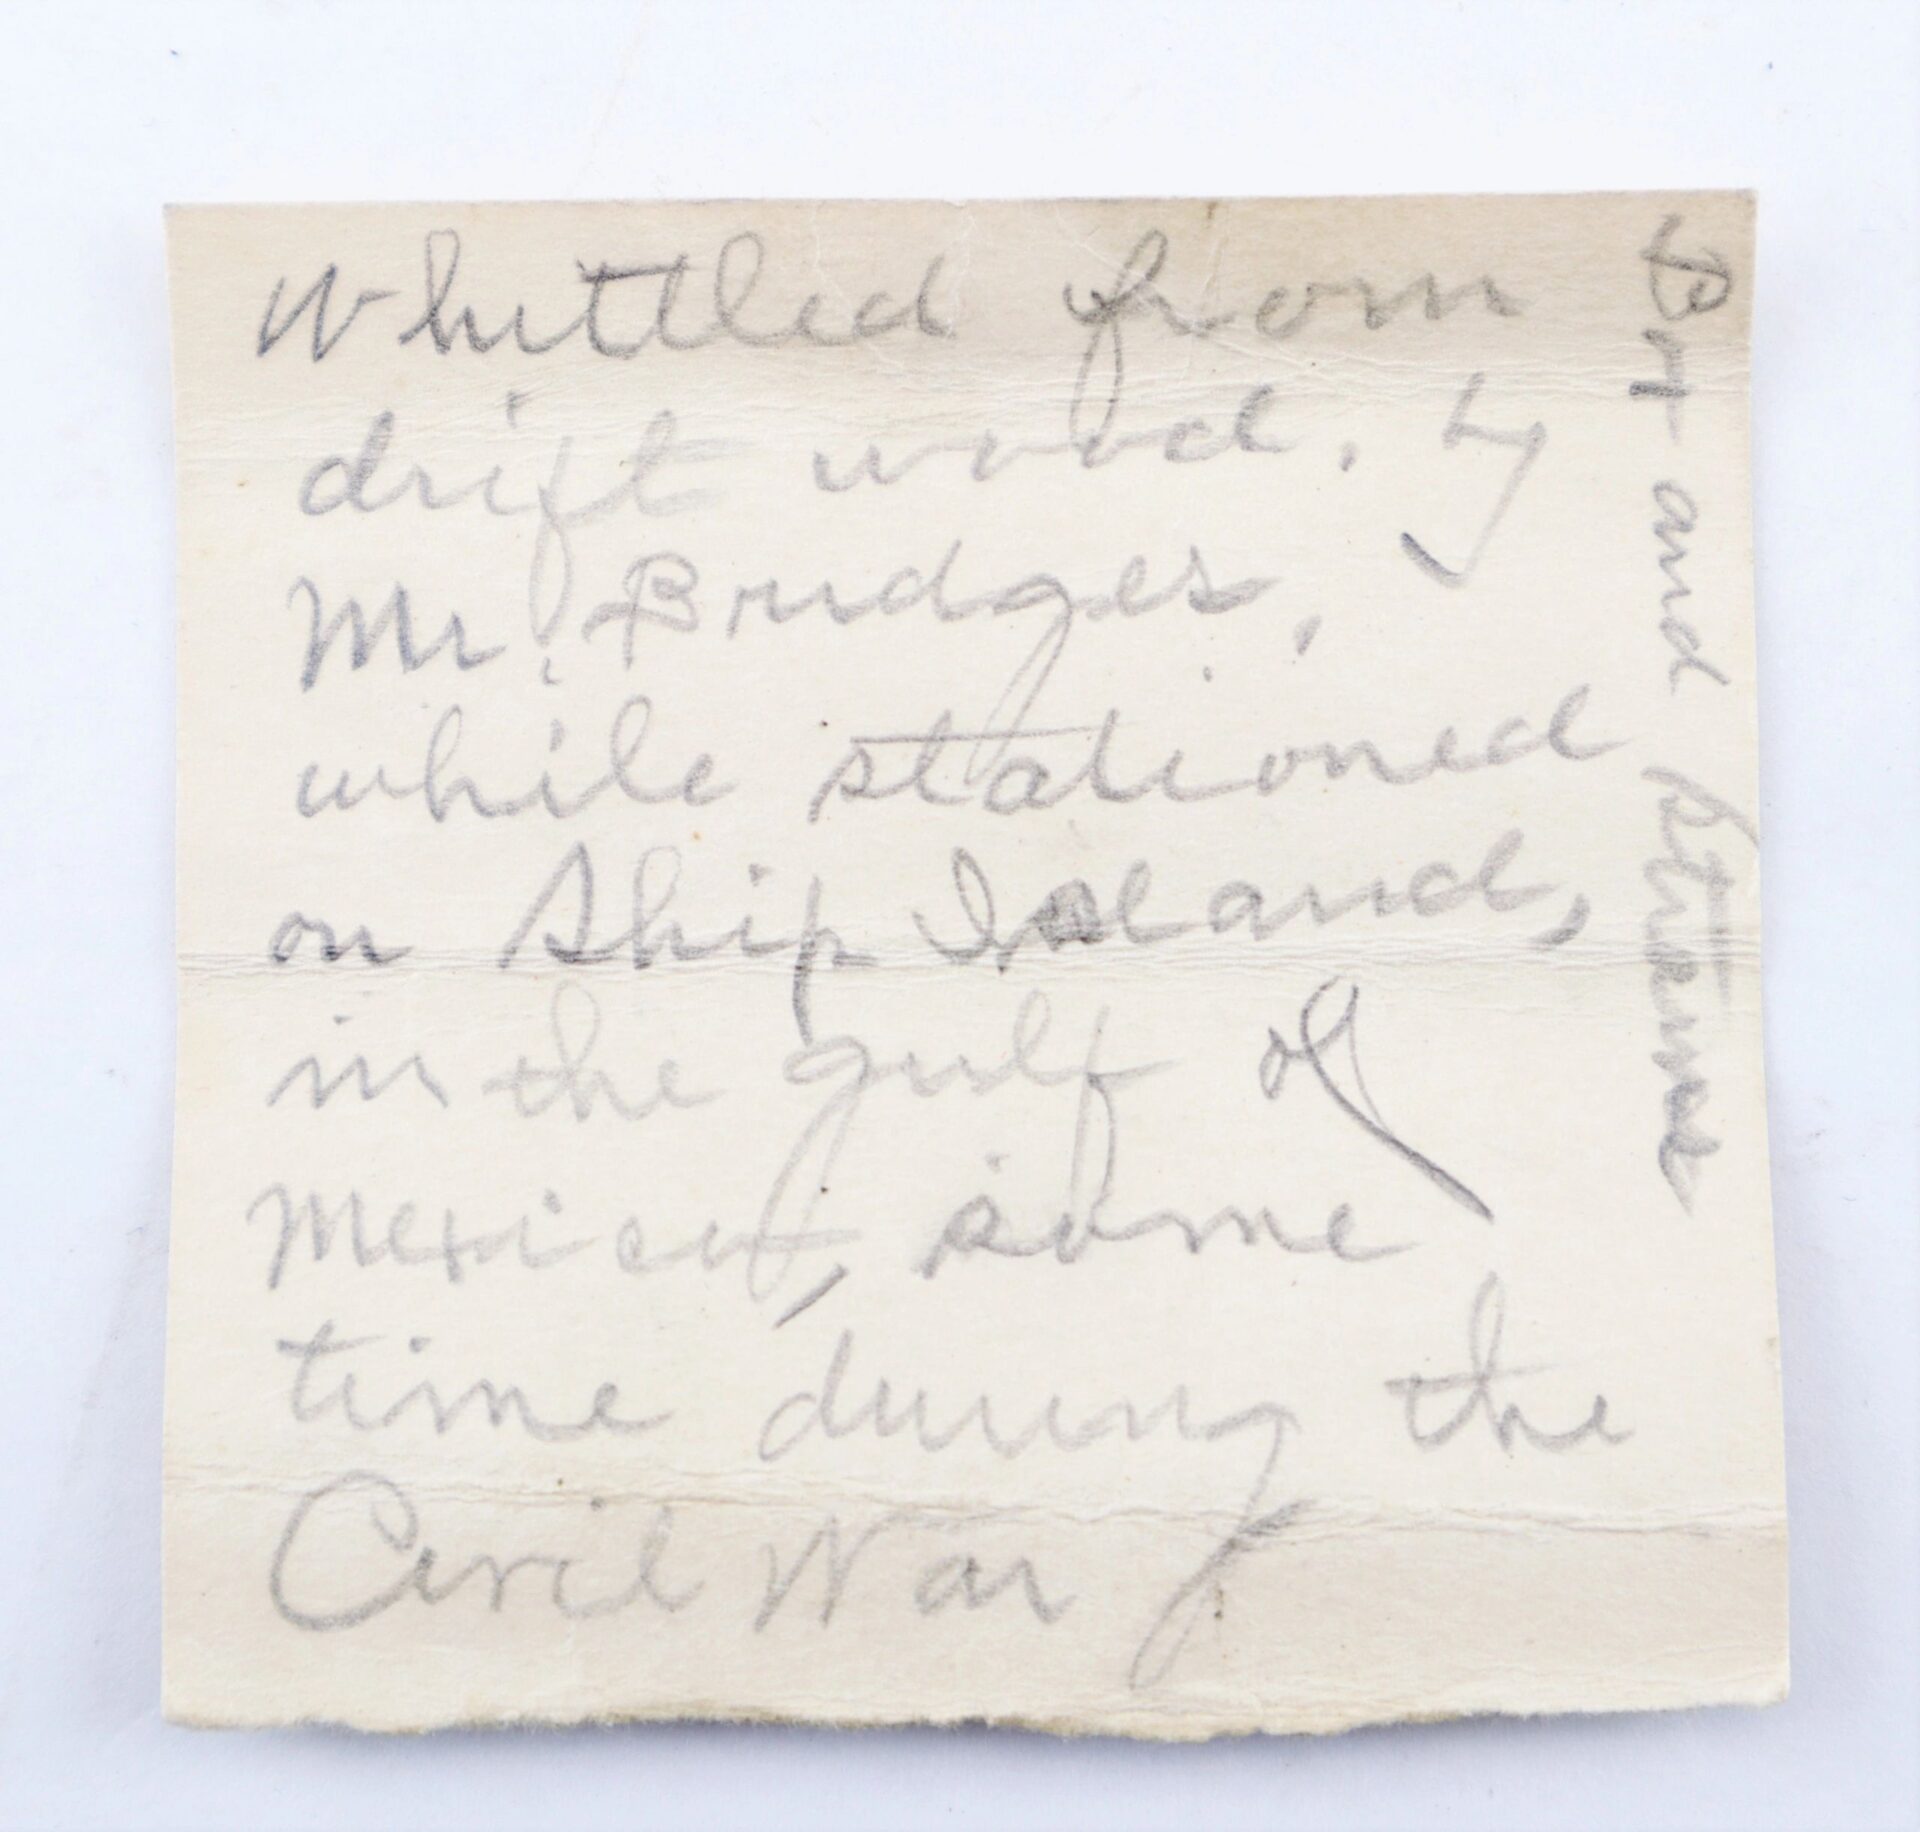 Whittled from
drift wood, by
Mr. Bridges,
while stationed
on Ship Island,
in the gulf of
Mexico, some
time during the
Civil War
and